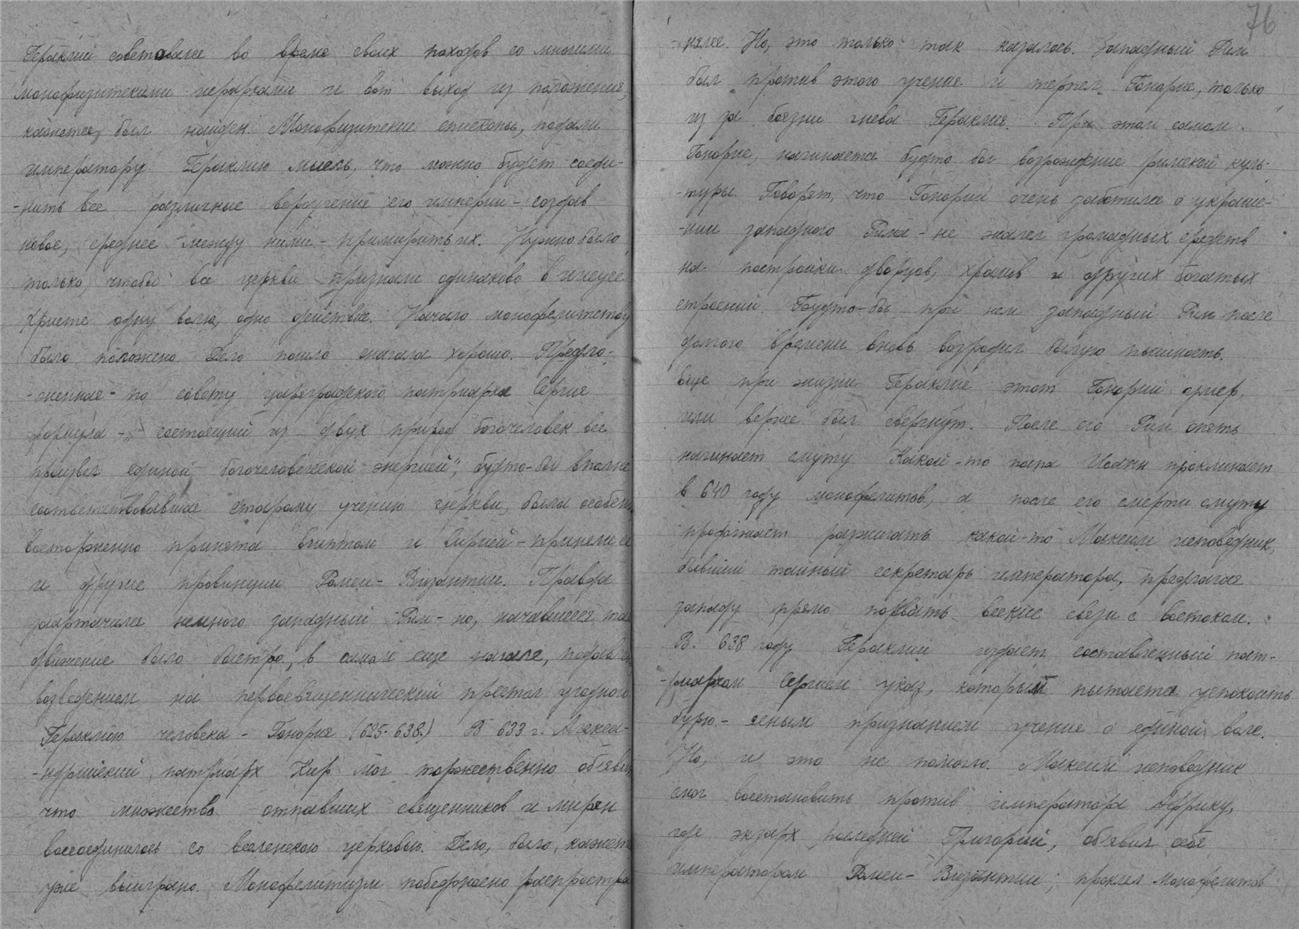 Гераклий советовался во время своих походов со многими
монофизитскими иерархами и вот выход из положения,
кажется, был найден. Монофизитские епископы, подали
императору Гераклию мысль, что можно будет соеди-
-нить все различные верования его империи - создав
новое, среднее между ними - примирить их. Нужно было
только, чтобы все церкви признали одинаково в Иисусе
Христе одну волю, одно действие. Начало монофелитству
было положено. Дело пошло сначала хорошо. Предло-
-женная - по совету цареградского патриарха Сергия
формула - "состоящий из двух природ богочеловек все
единой богочеловеческой энергией", будто-бы вполне
соответствовавшая старому учению церкви, была особенно
восторженно принята Египтом и Сирией - приняли её
и другие провинции Ромеи - Византии. Правда
заартачился немного западный Рим - но, начавшееся там
движение было быстро, в самом еще начале,
возведением на первосвященнический престол угодного
Гераклию человека - Гонория (625-638.) В 633 г. Алексан-
-дрийский патриарх Кир мог торжественно объявить,
что множество отпавших священников и мирян
воссоединилось со вселенскою церковью. Дело, было, кажется
уже выиграно. Монофелитизм победоносно распростра
76
-нялся. Но, это только так казалось. Западный Рим
был против этого учения и терпел Гонория, только
из за боязни гнева Гераклия. При этом самом
Гонорие, начинается будто бы возрождение римской куль-
-туры. Говорят, что Гонорий очень заботился о украше-
-нии западного Рима - не жалел громадных средств
на постройки дворцов, храмов и других богатых
строений. Будто-бы при нем западный Рим после
долгого времени вновь возродил былую пышность.
Еще при жизни Гераклия этот Гонорий умер,
или вернее был свергнут. После его Рим опять
начинает смуту. Какой-то папа Иоанн проклинает
в 640 году монофелитов, а после его смерти смуту
продолжает разжигать какой-то Максим исповедник,
бывший тайный секретарь императора, предлагая
западу прямо порвать всякие связи с востоком.
В. 638 году Гераклий издает составленный пат-
-риархом Сергием указ, который пытается успокоить
бурю - ясным признанием учения о единой воле.
Но, и это не помогло. Максим исповедник
смог восстановить против императора Африку,
где экзарх последней Григорий, объявил себя
императором Ромеи - Византии; проклял монофелитов